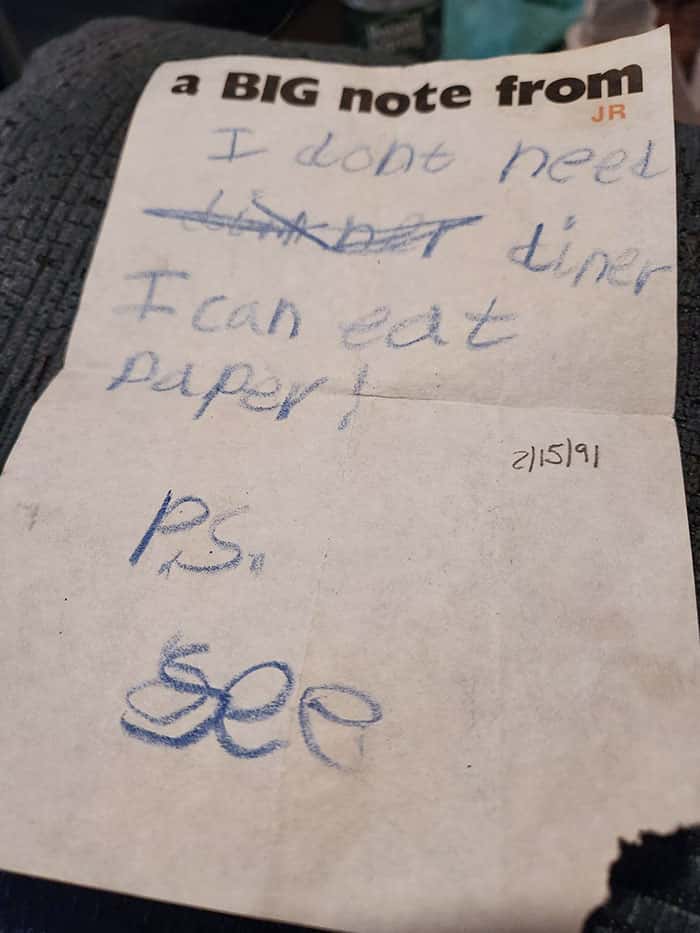 a BIG note from
JR
I dont need
diner
I can eat
paper!
2/15/91
P.S.
see